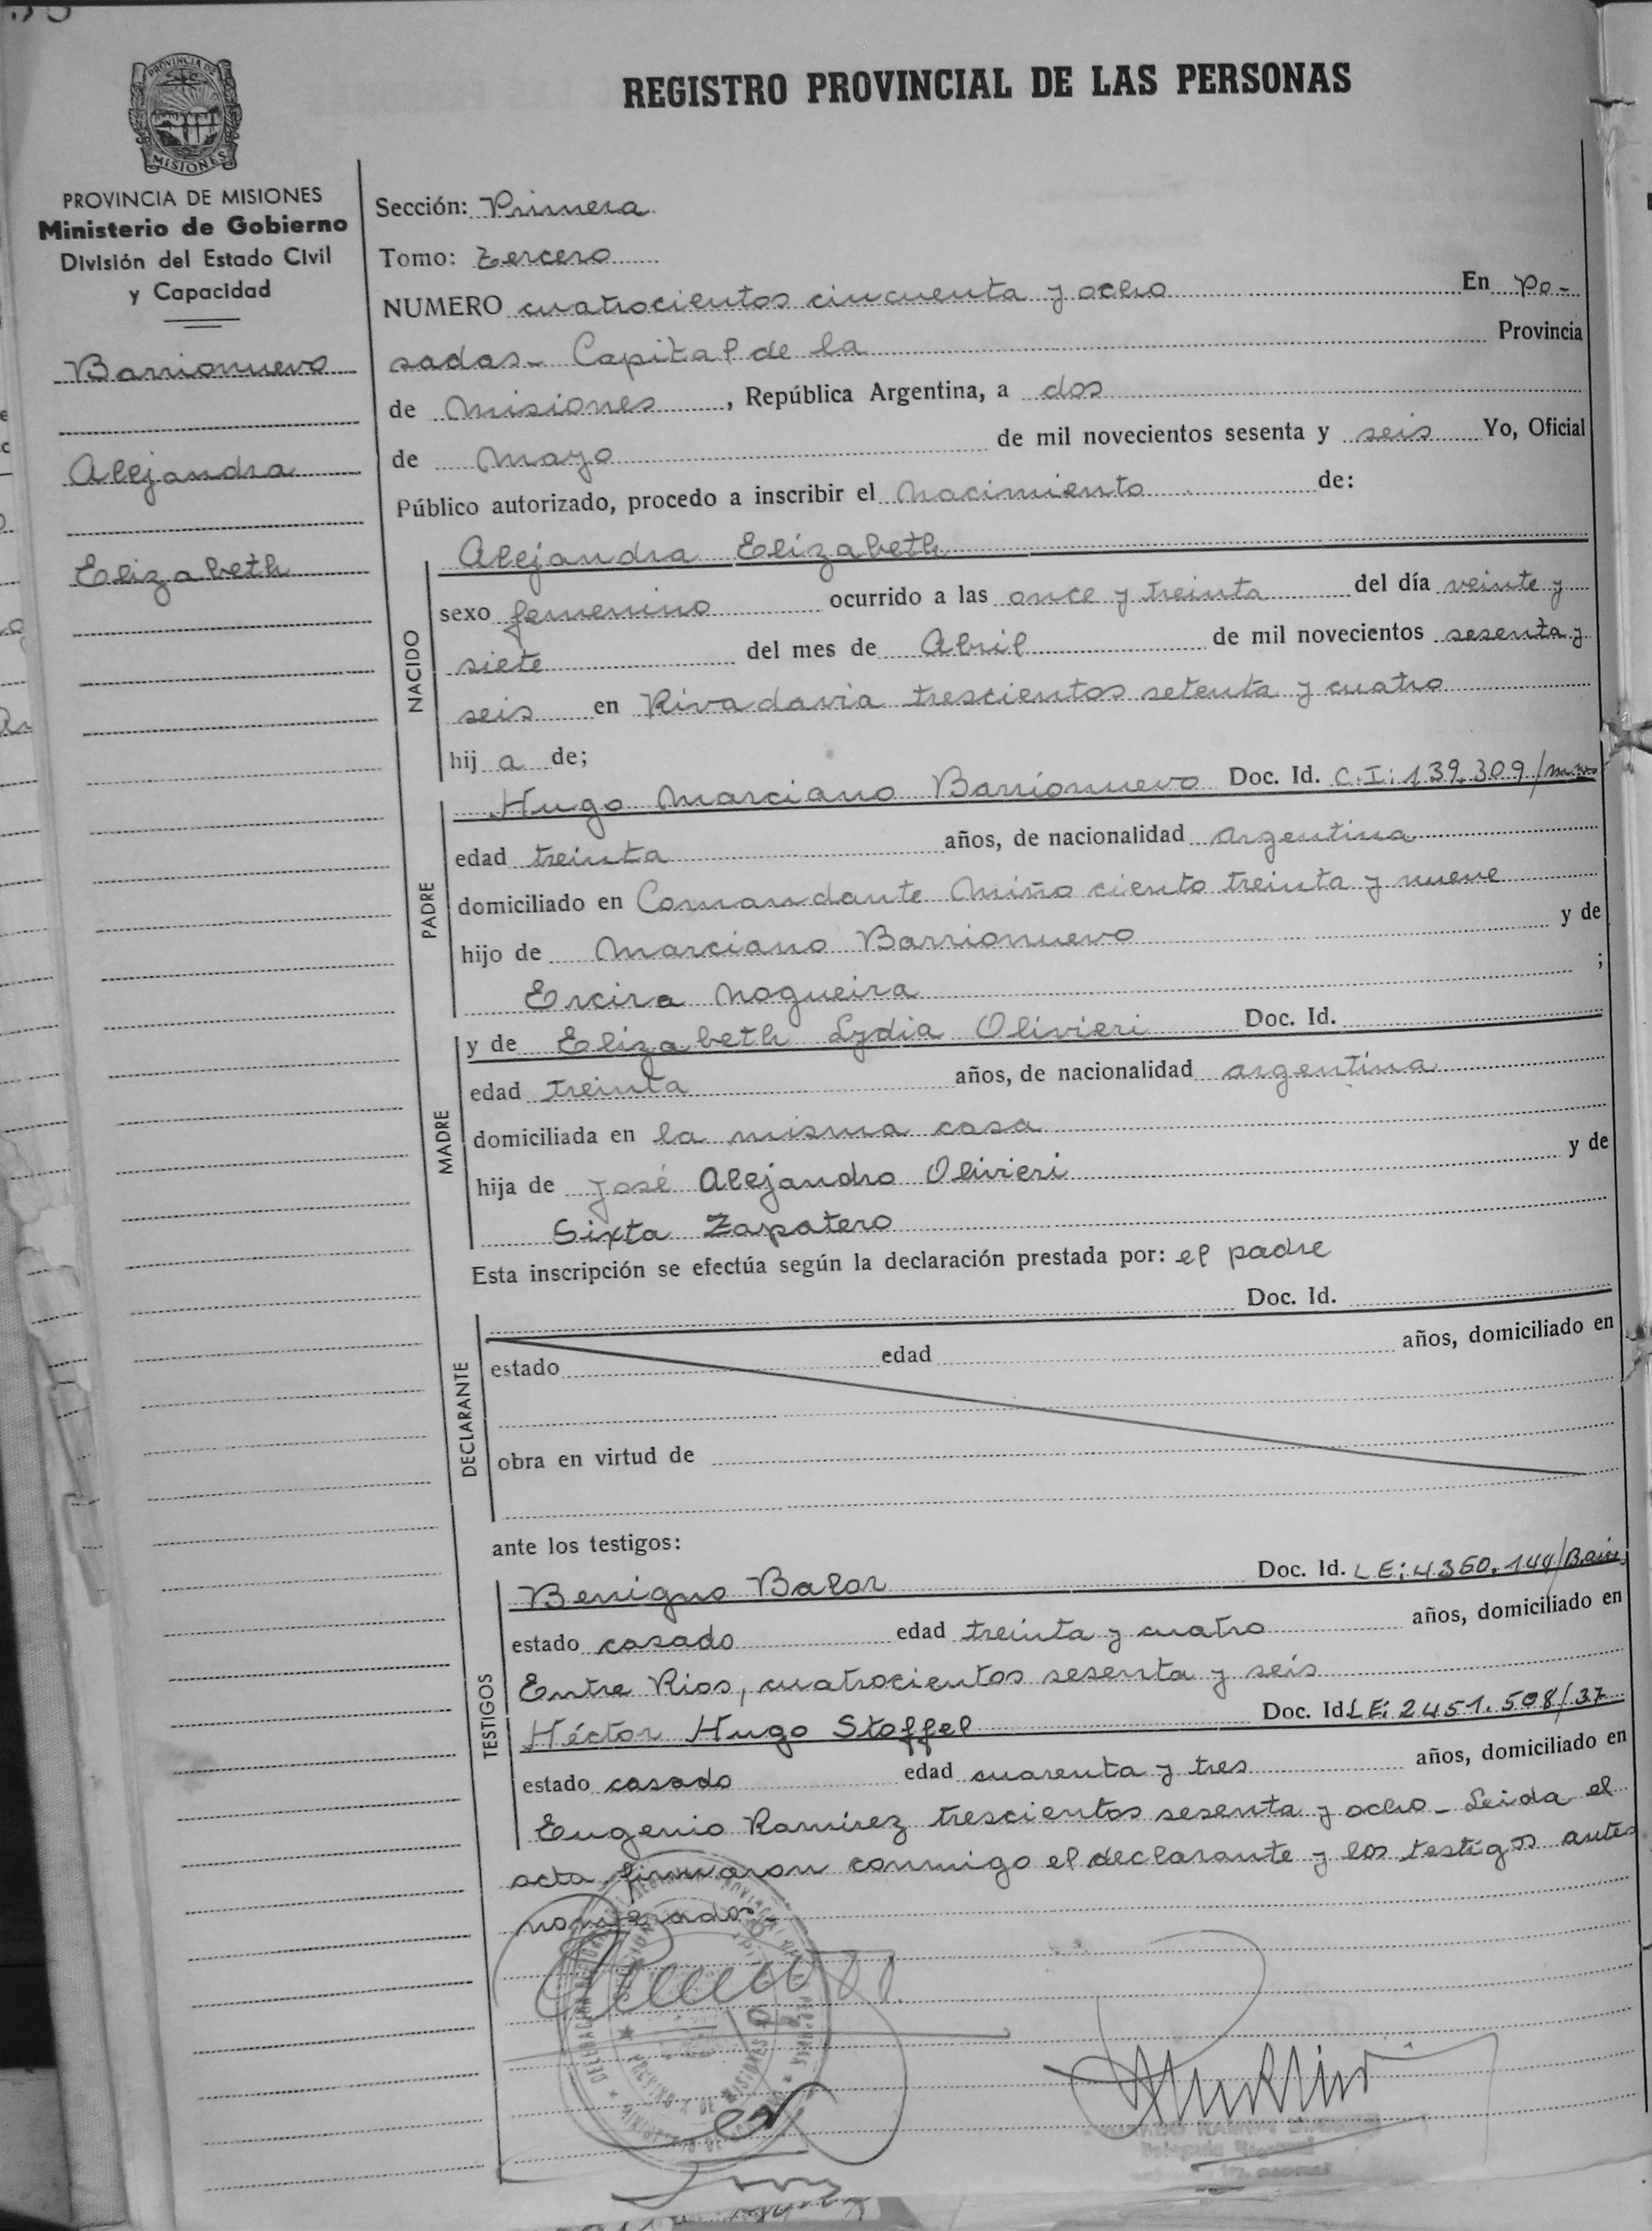 REGISTRO PROVINCIAL DE LAS PERSONAS
PROVINCIA DE
MISIONES
PROVINCIA DE MISIONES
Ministerio de Gobierno
División del Estado Civil
y Capacidad
Barrionuevo
Alejandra
Elizabeth
Sección: Primera
Tomo: tercero
NUMERO cuatrocientos cincuenta y ocho En Po-
sadas- Capital de la Provincia
de Misiones, República Argentina, a dos
de Mayo de mil novecientos sesenta y seis Yo, Oficial
Público autorizado, procedo a inscribir el Nacimiento de:
NACIDO
Alejandra Elizabeth
sexo femenino ocurrido a las once y treinta del día veinte y
siete del mes de Abril de mil novecientos sesenta y
seis en Rivadavia trescientos setenta y cuatro
hij a de;
PADRE
Hugo Marciano Barrionuevo Doc. Id. C.I: 139.309/mnes
edad treinta años, de nacionalidad argentina
domiciliado en Comandante Miño ciento treinta y nueve
hijo de Marciano Barrionuevo y de
Ercira Nogueira ;
MADRE
y de Elizabeth Lydia Olivieri Doc. Id.
edad treinta años, de nacionalidad argentina
domiciliada en la misma casa
hija de José Alejandro Olivieri y de
Sixta Zapatero
Esta inscripción se efectúa según la declaración prestada por: el padre
DECLARANTE
Doc. Id.
estado edad años, domiciliado en
obra en virtud de
ante los testigos:
TESTIGOS
Benigno Balor Doc. Id. LE: 4360.144/Baires
estado casado edad treinta y cuatro años, domiciliado en
Entre Rios, cuatrocientos sesenta y seis
Héctor Hugo Stoffel Doc. Id LE: 2451.508/37
estado casado edad cuarenta y tres años, domiciliado en
Eugenio Ramirez trescientos sesenta y ocho - Leida el
acta, firmaron conmigo el declarante y los testigos antes
nombrados-